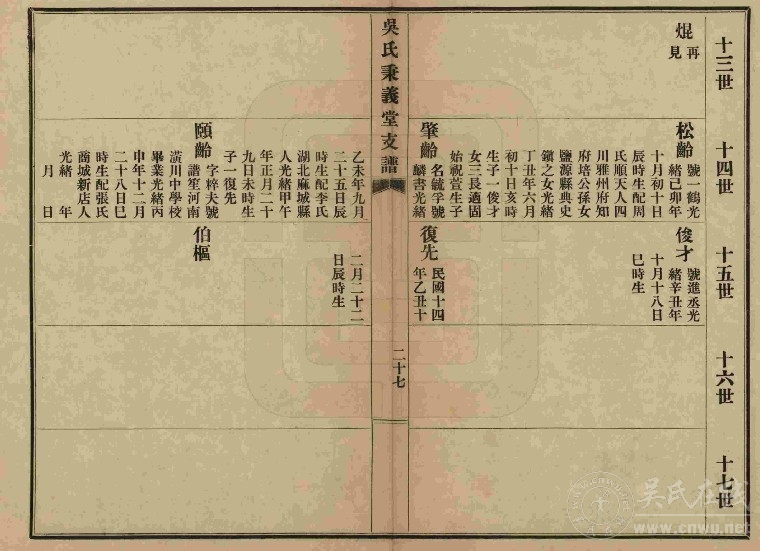 十三世
十四世
十五世
十六世
十七世
焜
再
見
松齡
號一鶴光
緒己卯年
十月初十日
辰時生配周
氏順天人四
川雅州府知
府培公孫女
鹽源縣典史
鎭之女光緒
丁丑年六月
初十日亥時
生子一俊才
女三長適固
始祝萱生子
肇齡
名毓孚號
麟書光緒
俊才
號進丞光
緒辛丑年
十月十八日
巳時生
復先
民國十四
年乙丑十
吳氏秉義堂支譜
二十七
乙未年九月
二十五日辰
時生配李氏
湖北麻城縣
人光緒甲午
年正月二十
九日未時生
子一復先
頤齡
字粹夫號
譜笙河南
潢川中學校
畢業光緒丙
申年十二月
二十八日巳
時生配張氏
商城新店人
光緒 年
月 日
二月二十二
日辰時生
伯樞
吳氏在线
www.cnwu.net